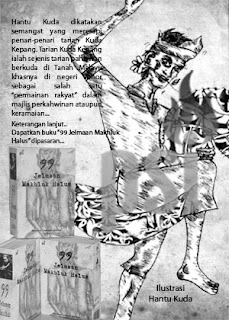 Hantu Kuda dikatakan
semangat yang meresapi
penari-penari tarian Kuda
Kepang. Tarian Kuda Kepang
ialah sejenis tarian pahlawan
berkuda di Tanah Melayu
khasnya di negeri Johor
sebagai salah satu
"permainan rakyat" dalam
majlis perkahwinan ataupun
keramaian...
Keterangan lanjut..
Dapatkan buku "99 Jelmaan Makhluk
Halus" dipasaran...
99
Jelmaan
Makhluk Halus
99
Jelmaan
Makhluk Halus
99
Jelmaan
Makhluk Halus
Ilustrasi
Hantu Kuda